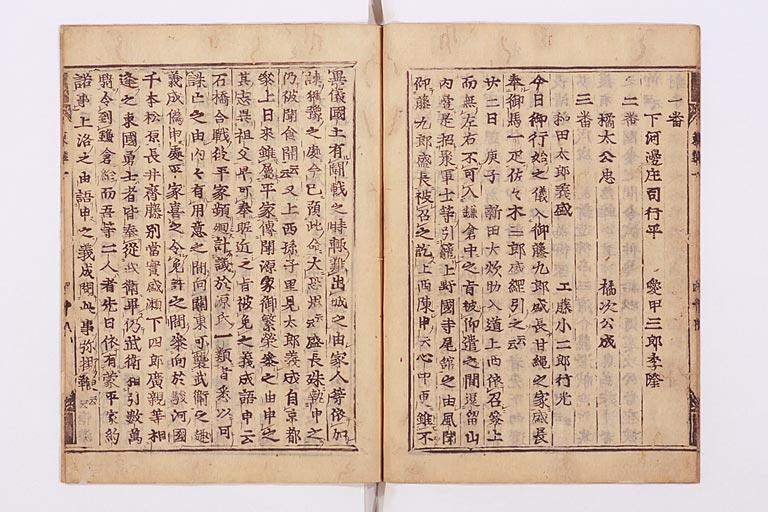 一番
下河邊庄司行平　愛甲三郎季隆
二番
橘太公忠　橘次公成
三番
和田太郎義盛　工藤小二郎行光
今日御行始之儀入御藤九郎盛長甘縄之家盛長
奉御馬一疋佐々木三郎盛綱引之云々
廿二日庚子　新田大炊助入道上西依召參上
而無左右不可入鎌倉中之旨被仰遣之間逗留山
内邊是招聚軍士等引籠上野國寺尾舘之由風聞
仰藤九郎盛長被召之訖上西陳申云心中更雖不
異儀國土有鬪戰之時輙難出城之由家人等依加
諫猶豫之處今已預此命大恐思云々盛長殊執申之
仍被聞食開云々又上西孫子里見太郎義成自京都
參上日來雖屬平家傳聞源家御繁榮參之由申之
其志異祖父早可奉昵近之旨被免之義成語申云
石橋合戰後平家頻廻計議於源氏一類者悉以可
誅亡之由内々有用意之間向關東可襲武衛之趣
義成僞申處平家喜之令免許之間參向於駿河國
千本松原長井齋藤別當實盛瀬下四郎廣親等相
逢之東國勇士者皆奉從武衛仍武衛相引數萬
騎令到鎌倉給而吾等二人者先日依有蒙平家約
諾事上洛之由語申之義成聞此事弥揚鞭